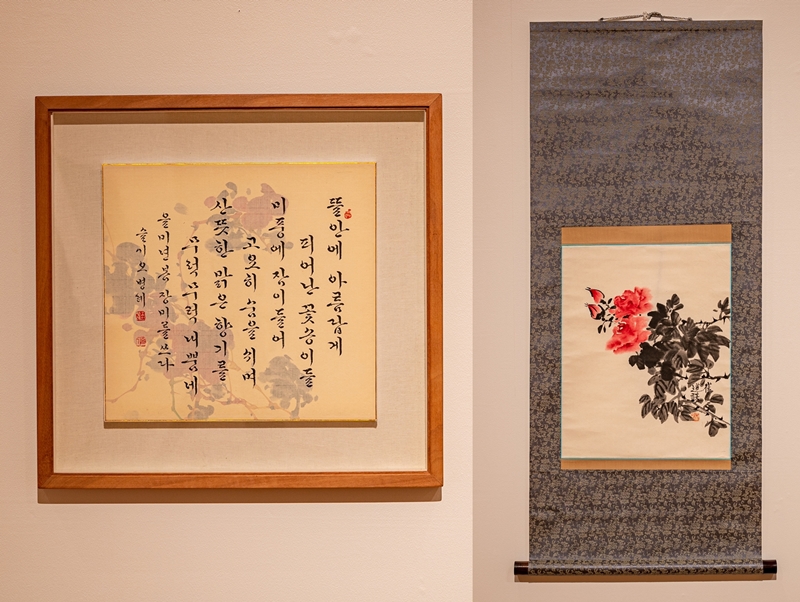 뜰안에 아름답게
피어난 꽃송이들
미풍에 잠이들어
고요히 숨을 쉬며
산뜻한 맑은 향기를
무럭무럭 내뿜네
을미년 봄 장미를 쓰다
슬기 오병례